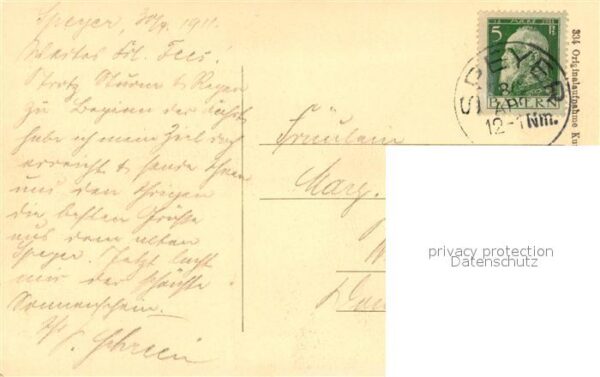 Speyer, 30/4. 1911.
Wertes Frl. Fees!
Trotz Sturm & Regen
zu Beginn der Fahrt
habe ich mein Ziel doch
erreicht & sende Ihnen
und den Ihrigen
die besten Grüße
aus dem alten
Speyer. Jetzt lacht
mir der schönste
Sonnenschein.
Fräulein
Marg.
5
BAYERN
SPEYER
AP
12-1 Nm.
334 Originalaufnahme
privacy protection
Datenschutz